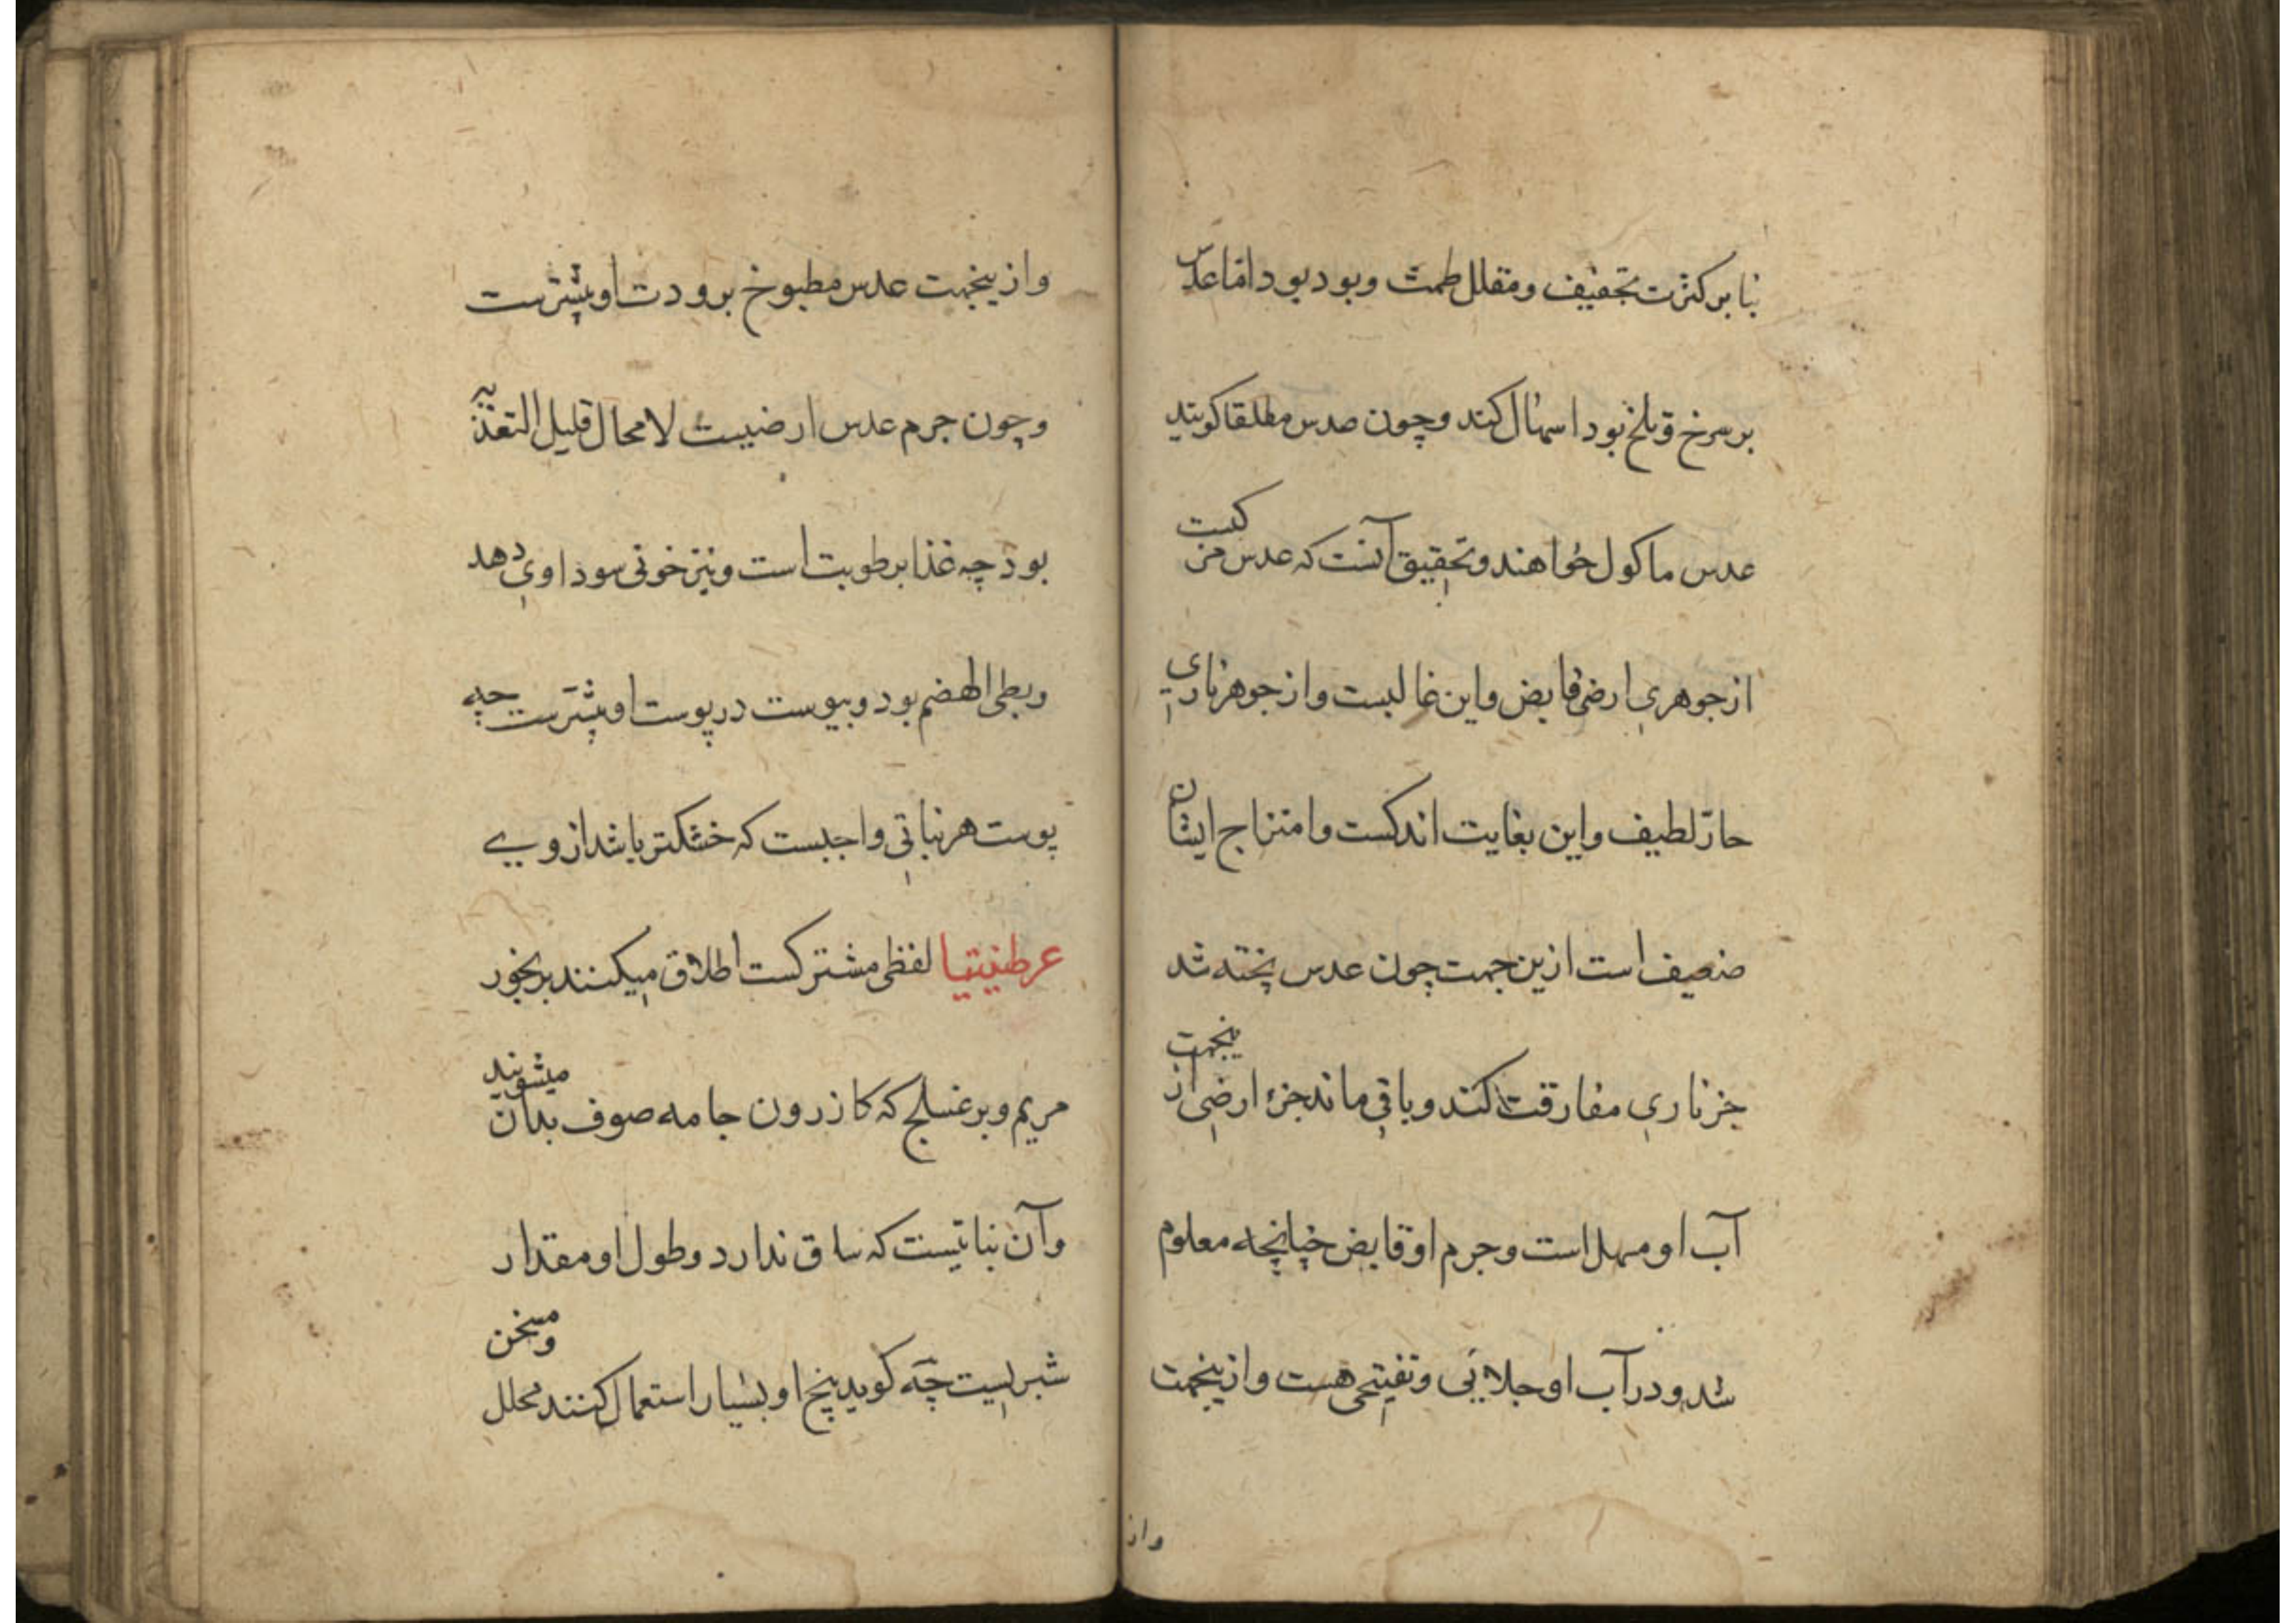 بنا بر کثرت تجفیف و مقلل طمث و بود بود اما عدس
بر سرخ و تلخ بود اسهال کند و چون عدس مطلقا کویند
عدس ماکول خواهند و تحقیق آنست که عدس مرکبست
از جوهری ارضی قابض و این غالبست و از جوهر ناری
حار لطیف و این بغایت اندکست و امتزاج ایشان
ضعیف است ازین جهت چون عدس پخته شد
جز ناری مفارقت کند و باقی ماند جزء ارضی ازینجهت
آب او مسهل است و جرم او قابض چنانچه معلوم
شد و در آب او جلائی و تفتیحی هست و ازینجهت
واز
وازینجهت عدس مطبوخ برودت او بیشترست
و چون جرم عدس ارضیست لامحال قلیل التغذیه
بود چه غذا برطوبت است و نیز خونی سوداوی دهد
و بطی الهضم بود و یبوست در پوست او بیشترست چه
پوست هر نباتی واجبست که خشکتر باشد از وی
عرطنیثا لفظی مشترکست اطلاق میکنند بر بخور
مریم و بر غسلج که کازرون جامه صوف بدان میشویند
وآن نباتیست که ساق ندارد و طول او مقدار
شبریست چه کوید بیخ او بسیار استعمال کنند محلل و مسخن